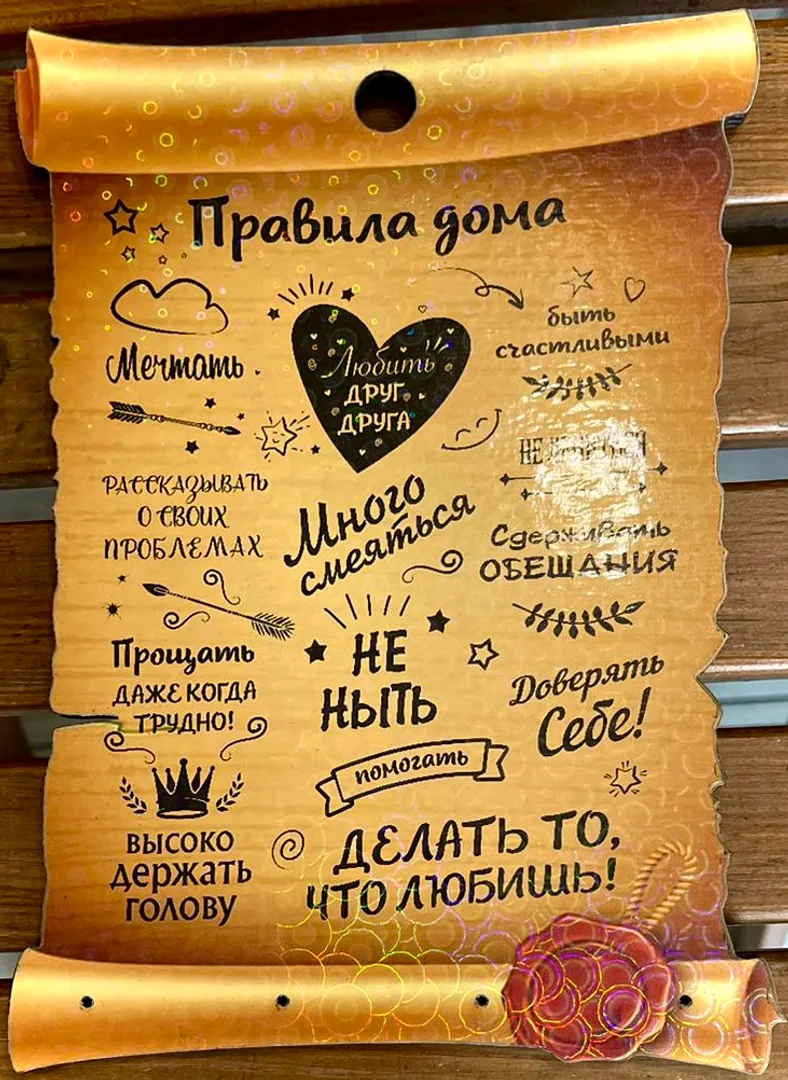 Правила дома
Мечтать
Любить
ДРУГ
ДРУГА
быть
счастливыми
НЕ
РАССКАЗЫВАТЬ
О СВОИХ
ПРОБЛЕМАХ
Много
смеяться
Сдерживать
ОБЕЩАНИЯ
Прощать
ДАЖЕ КОГДА
ТРУДНО!
НЕ
НЫТЬ
Доверять
Себе!
помогать
ВЫСОКО
держать
голову
ДЕЛАТЬ ТО,
ЧТО ЛЮБИШЬ!